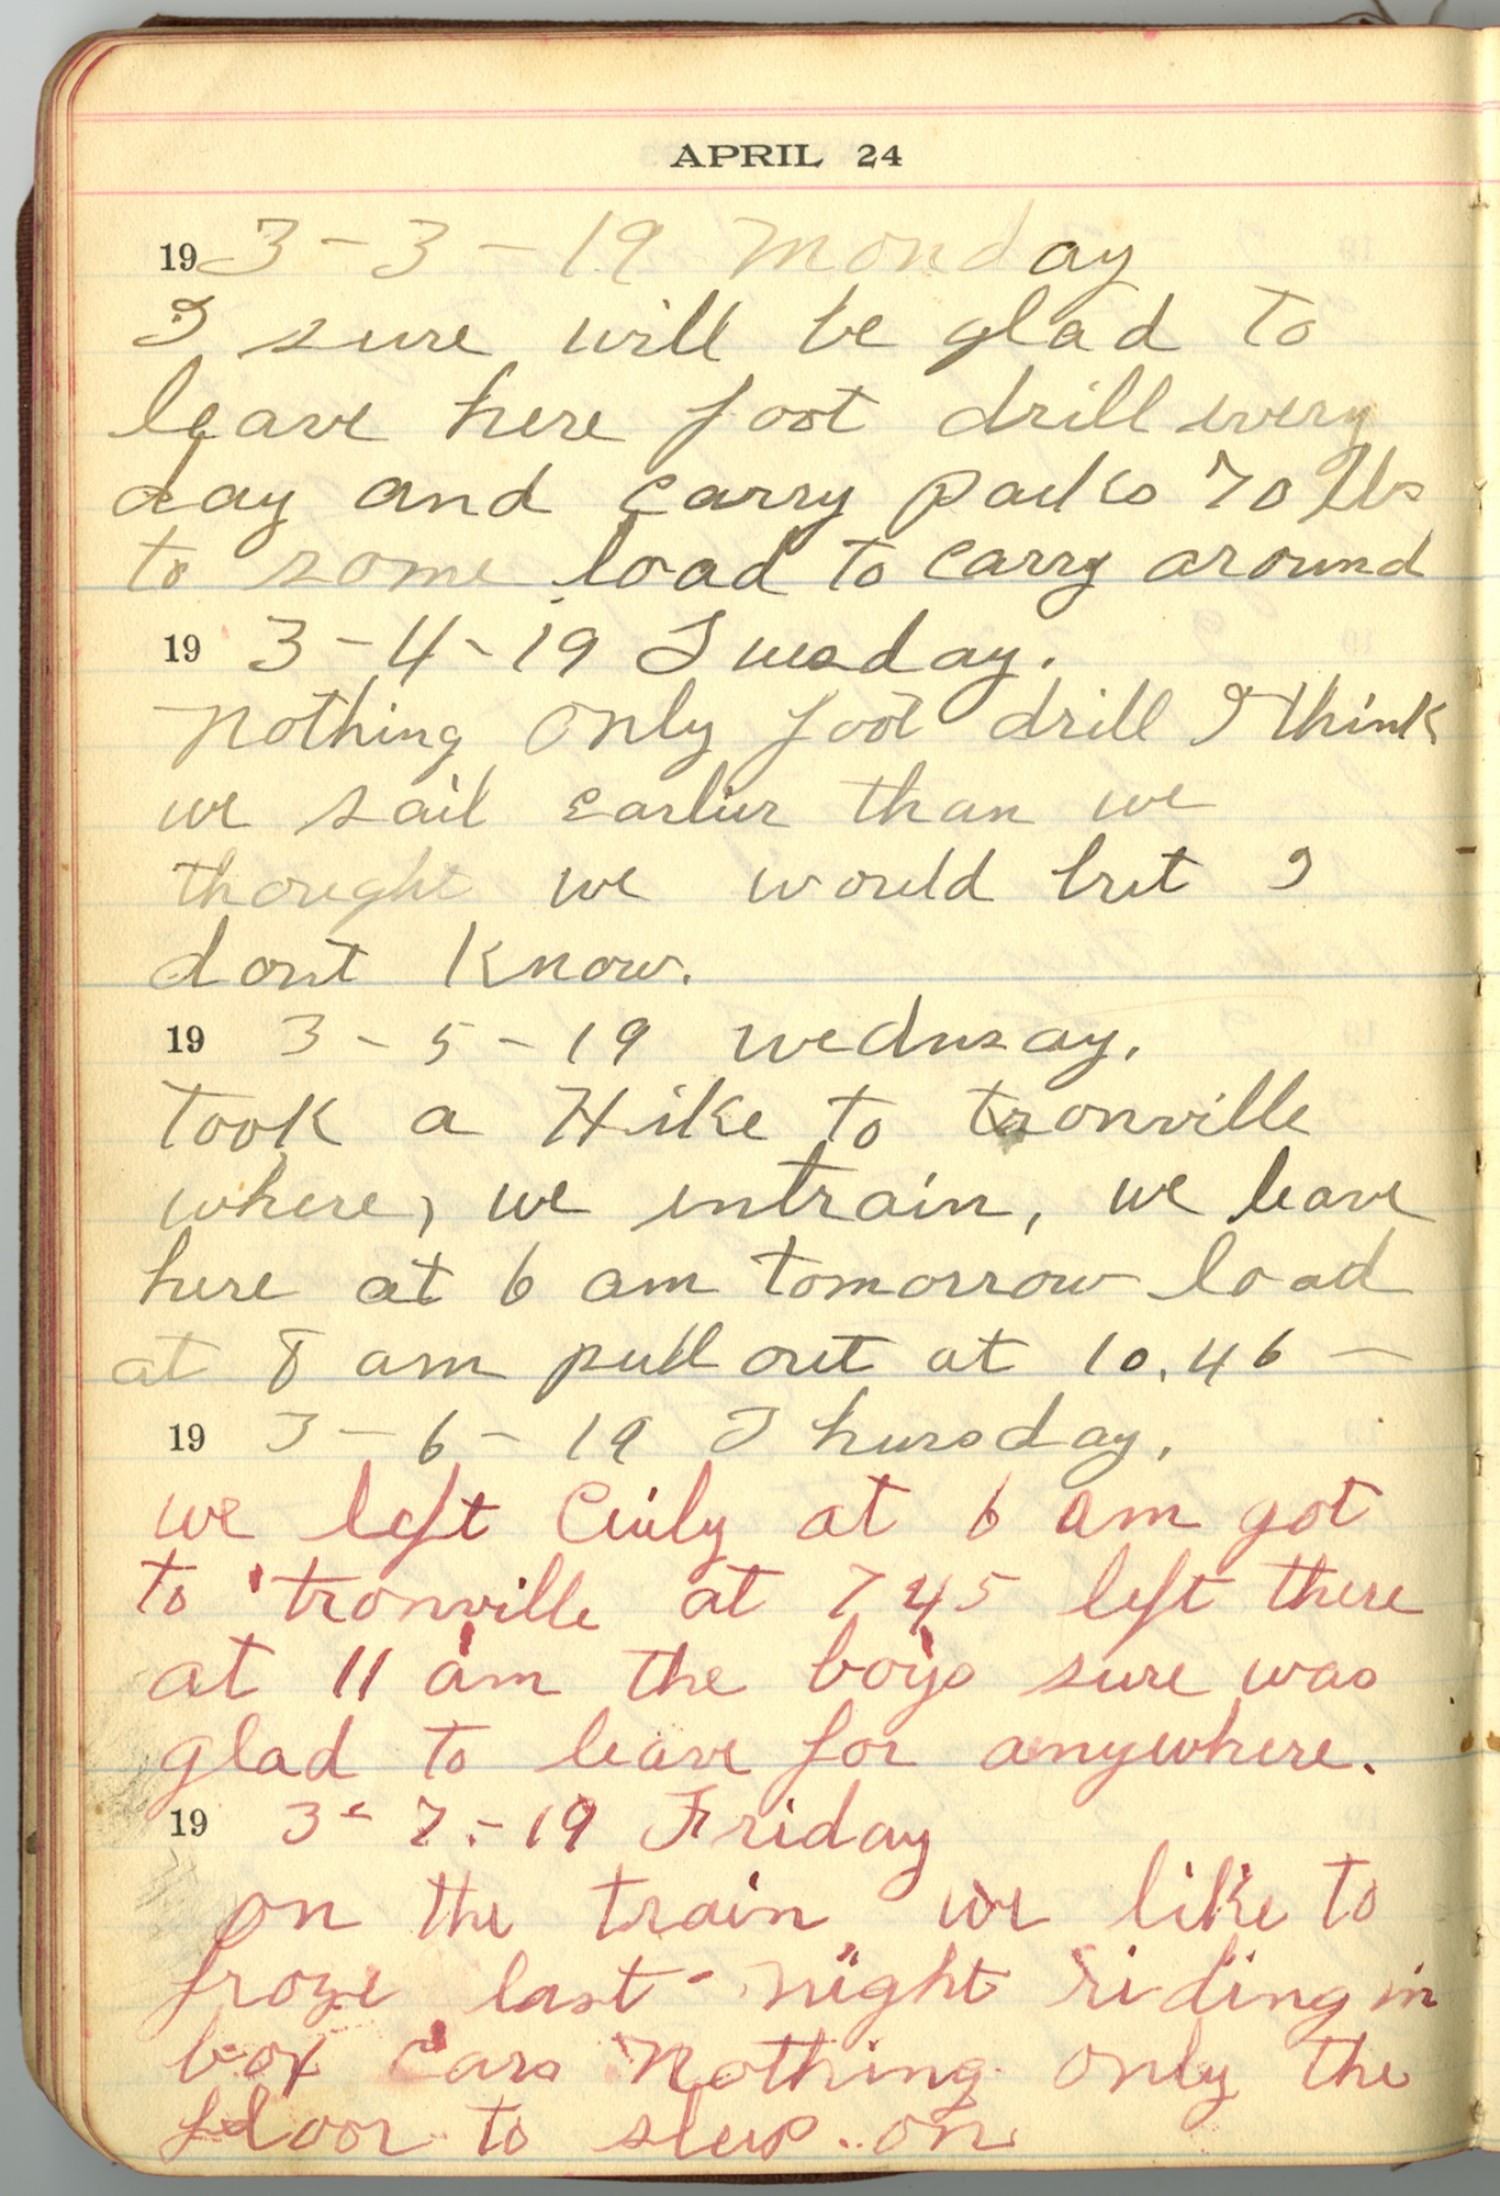 APRIL 24
19 3-3-19 Monday
I sure will be glad to
leave here foot drill every
day and carry packs 70 lbs
to some load to carry around
19 3-4-19 Tuesday.
Nothing only foot drill I think
we sail earlier than we
thought we would but I
dont know.
19 3-5-19 wednsay.
took a Hike to tronville
where, we entrain, we leave
here at 6 am tomorrow load
at 8 am pull out at 10.46 —
19 3-6-19 Thursday,
we left at 6 am got
to tronville at 745 left there
at 11 am the boys sure was
glad to leave for anywhere.
19 3-7-19 Friday
on the train we like to
froze last night riding in
box cars Nothing only the
floor to sleep on